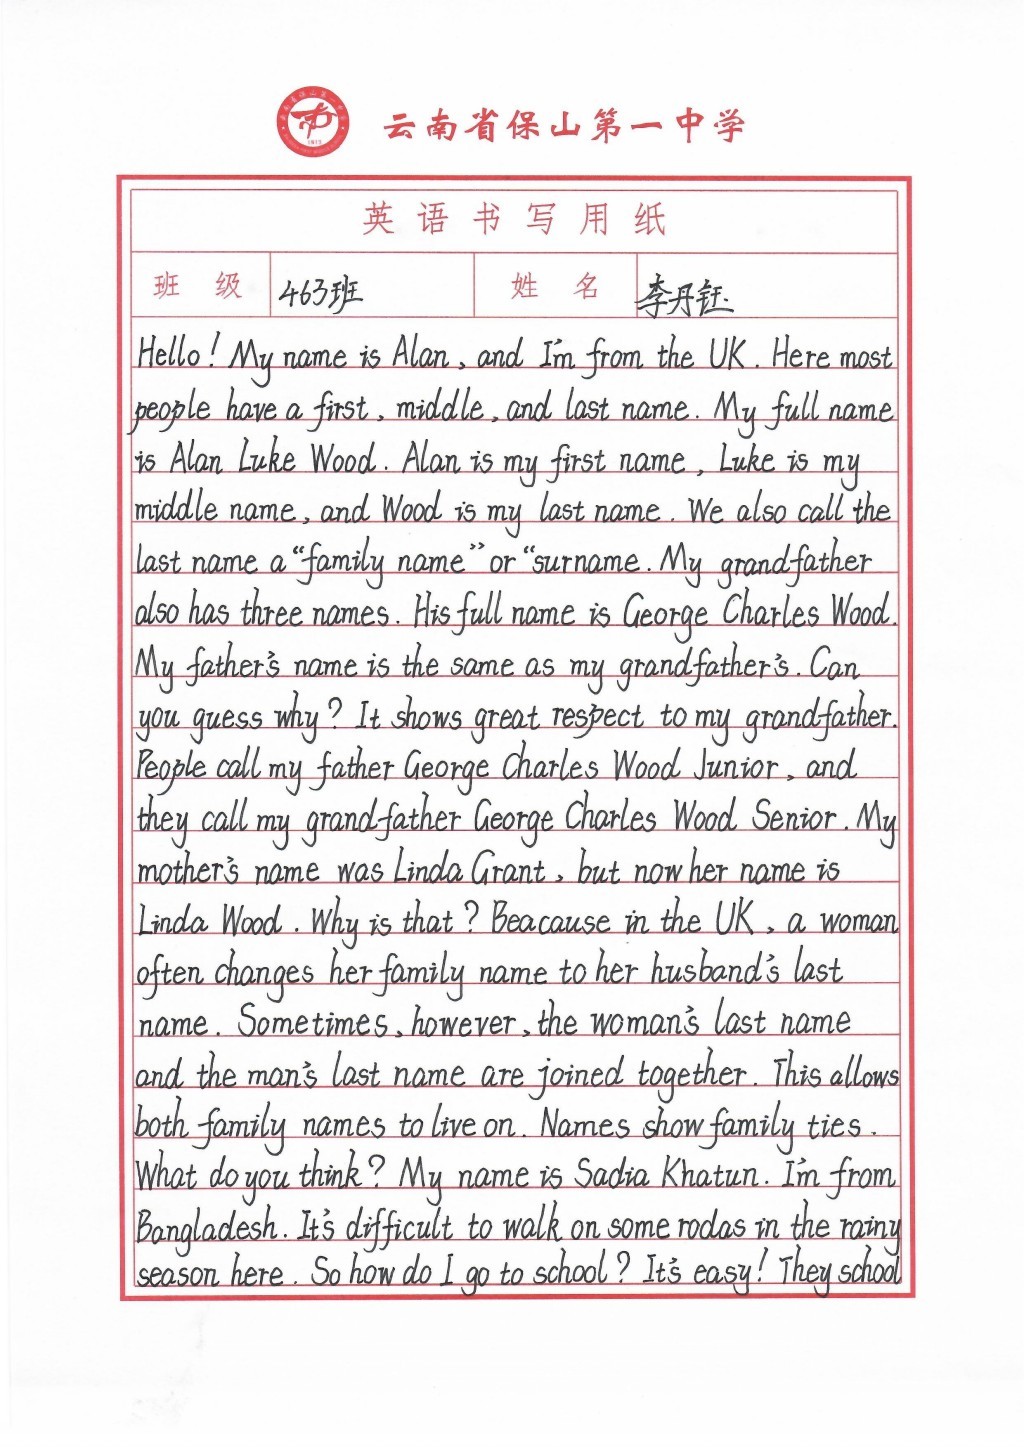 云南省保山第一中学
1913
英语书写用纸
班 级 463班 姓 名 李丹钰
Hello! My name is Alan, and I'm from the UK. Here most
people have a first, middle, and last name. My full name
is Alan Luke Wood. Alan is my first name, Luke is my
middle name, and Wood is my last name. We also call the
last name a "family name" or "surname. My grandfather
also has three names. His full name is George Charles Wood.
My father's name is the same as my grandfather's. Can
you guess why? It shows great respect to my grandfather.
People call my father George Charles Wood Junior, and
they call my grandfather George Charles Wood Senior. My
mother's name was Linda Grant, but now her name is
Linda Wood. Why is that? Beacause in the UK, a woman
often changes her family name to her husband's last
name. Sometimes, however, the woman's last name
and the man's last name are joined together. This allows
both family names to live on. Names show family ties.
What do you think? My name is Sadia Khatun. I'm from
Bangladesh. It's difficult to walk on some rodas in the rainy
season here. So how do I go to school? It's easy! They school